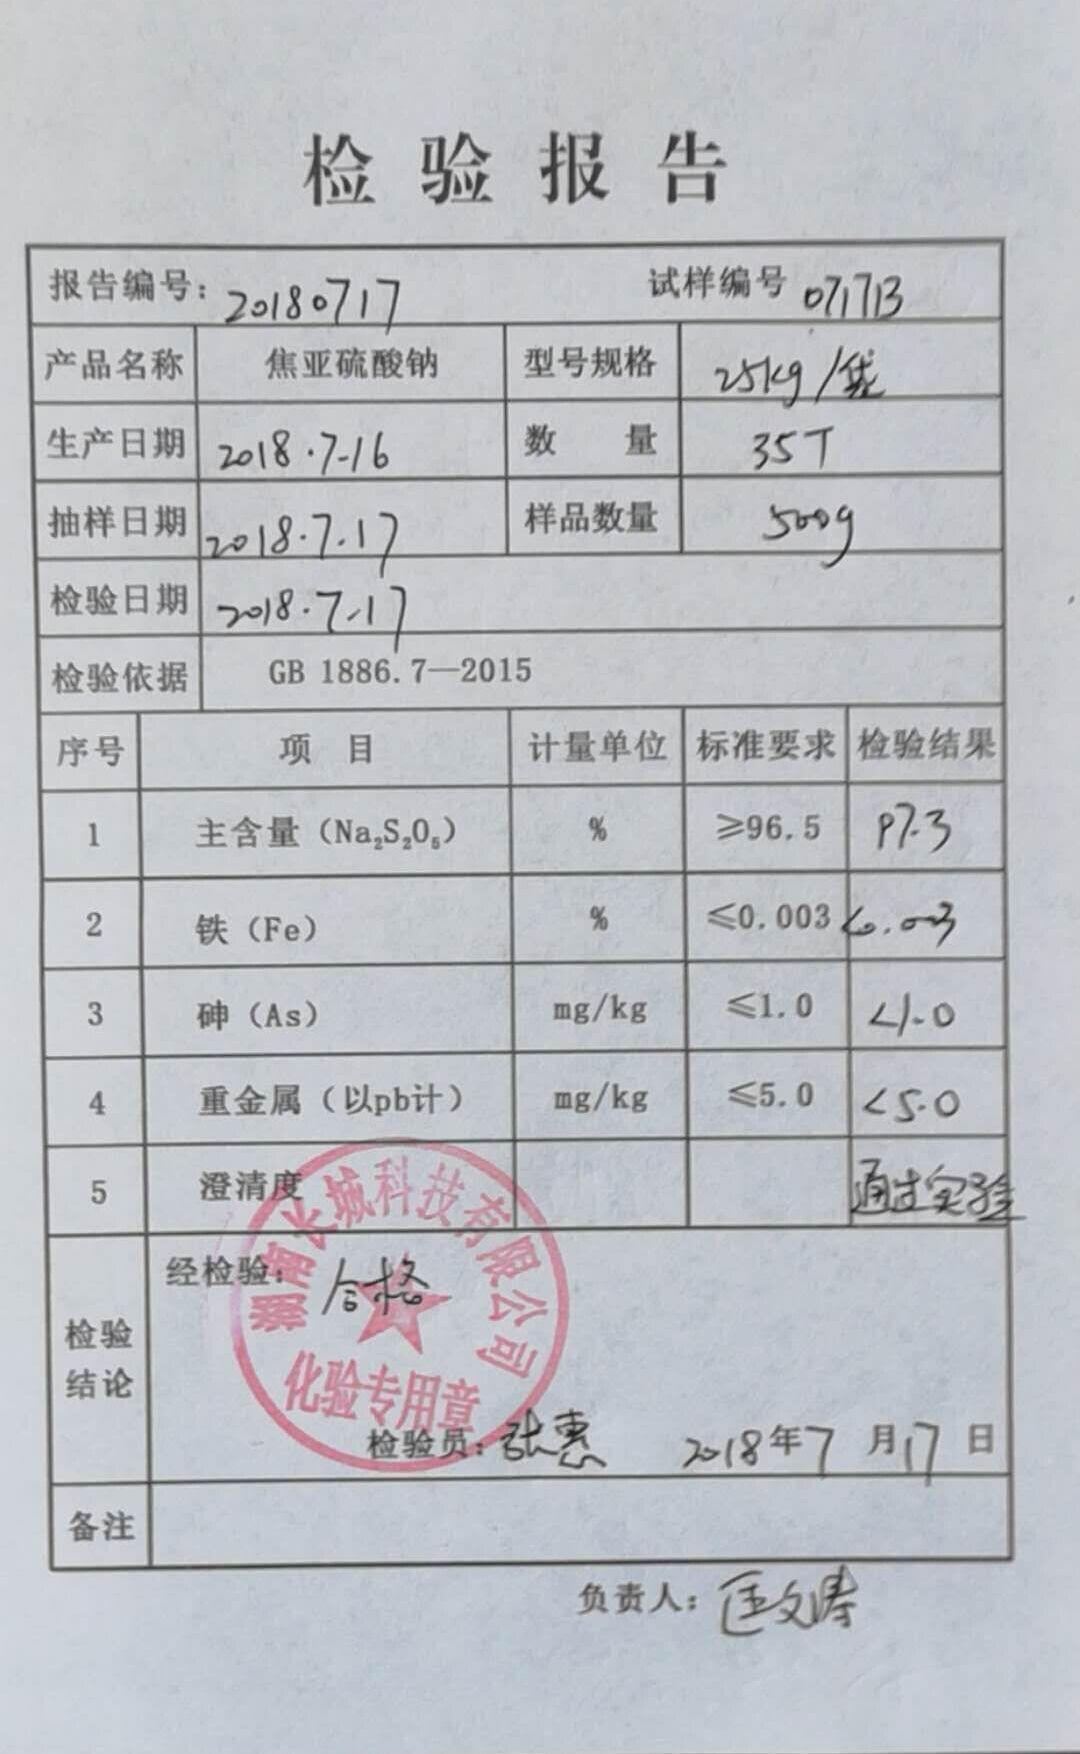 检验报告
报告编号：20180717 试样编号 071713
产品名称 焦亚硫酸钠 型号规格 25kg/袋
生产日期 2018.7-16 数量 35T
抽样日期 2018.7.17 样品数量 500g
检验日期 2018.7.17
检验依据 GB 1886.7—2015
序号 项目 计量单位 标准要求 检验结果
1 主含量（Na₂S₂O₅） % ≥96.5 97.3
2 铁（Fe） % ≤0.003 <0.003
3 砷（As） mg/kg ≤1.0 <1.0
4 重金属（以pb计） mg/kg ≤5.0 <5.0
5 澄清度 通过实验
检验结论 经检验：合格
湖南长城科技有限公司
化验专用章
检验员：张惠 2018年7月17日
备注
负责人：匡文涛